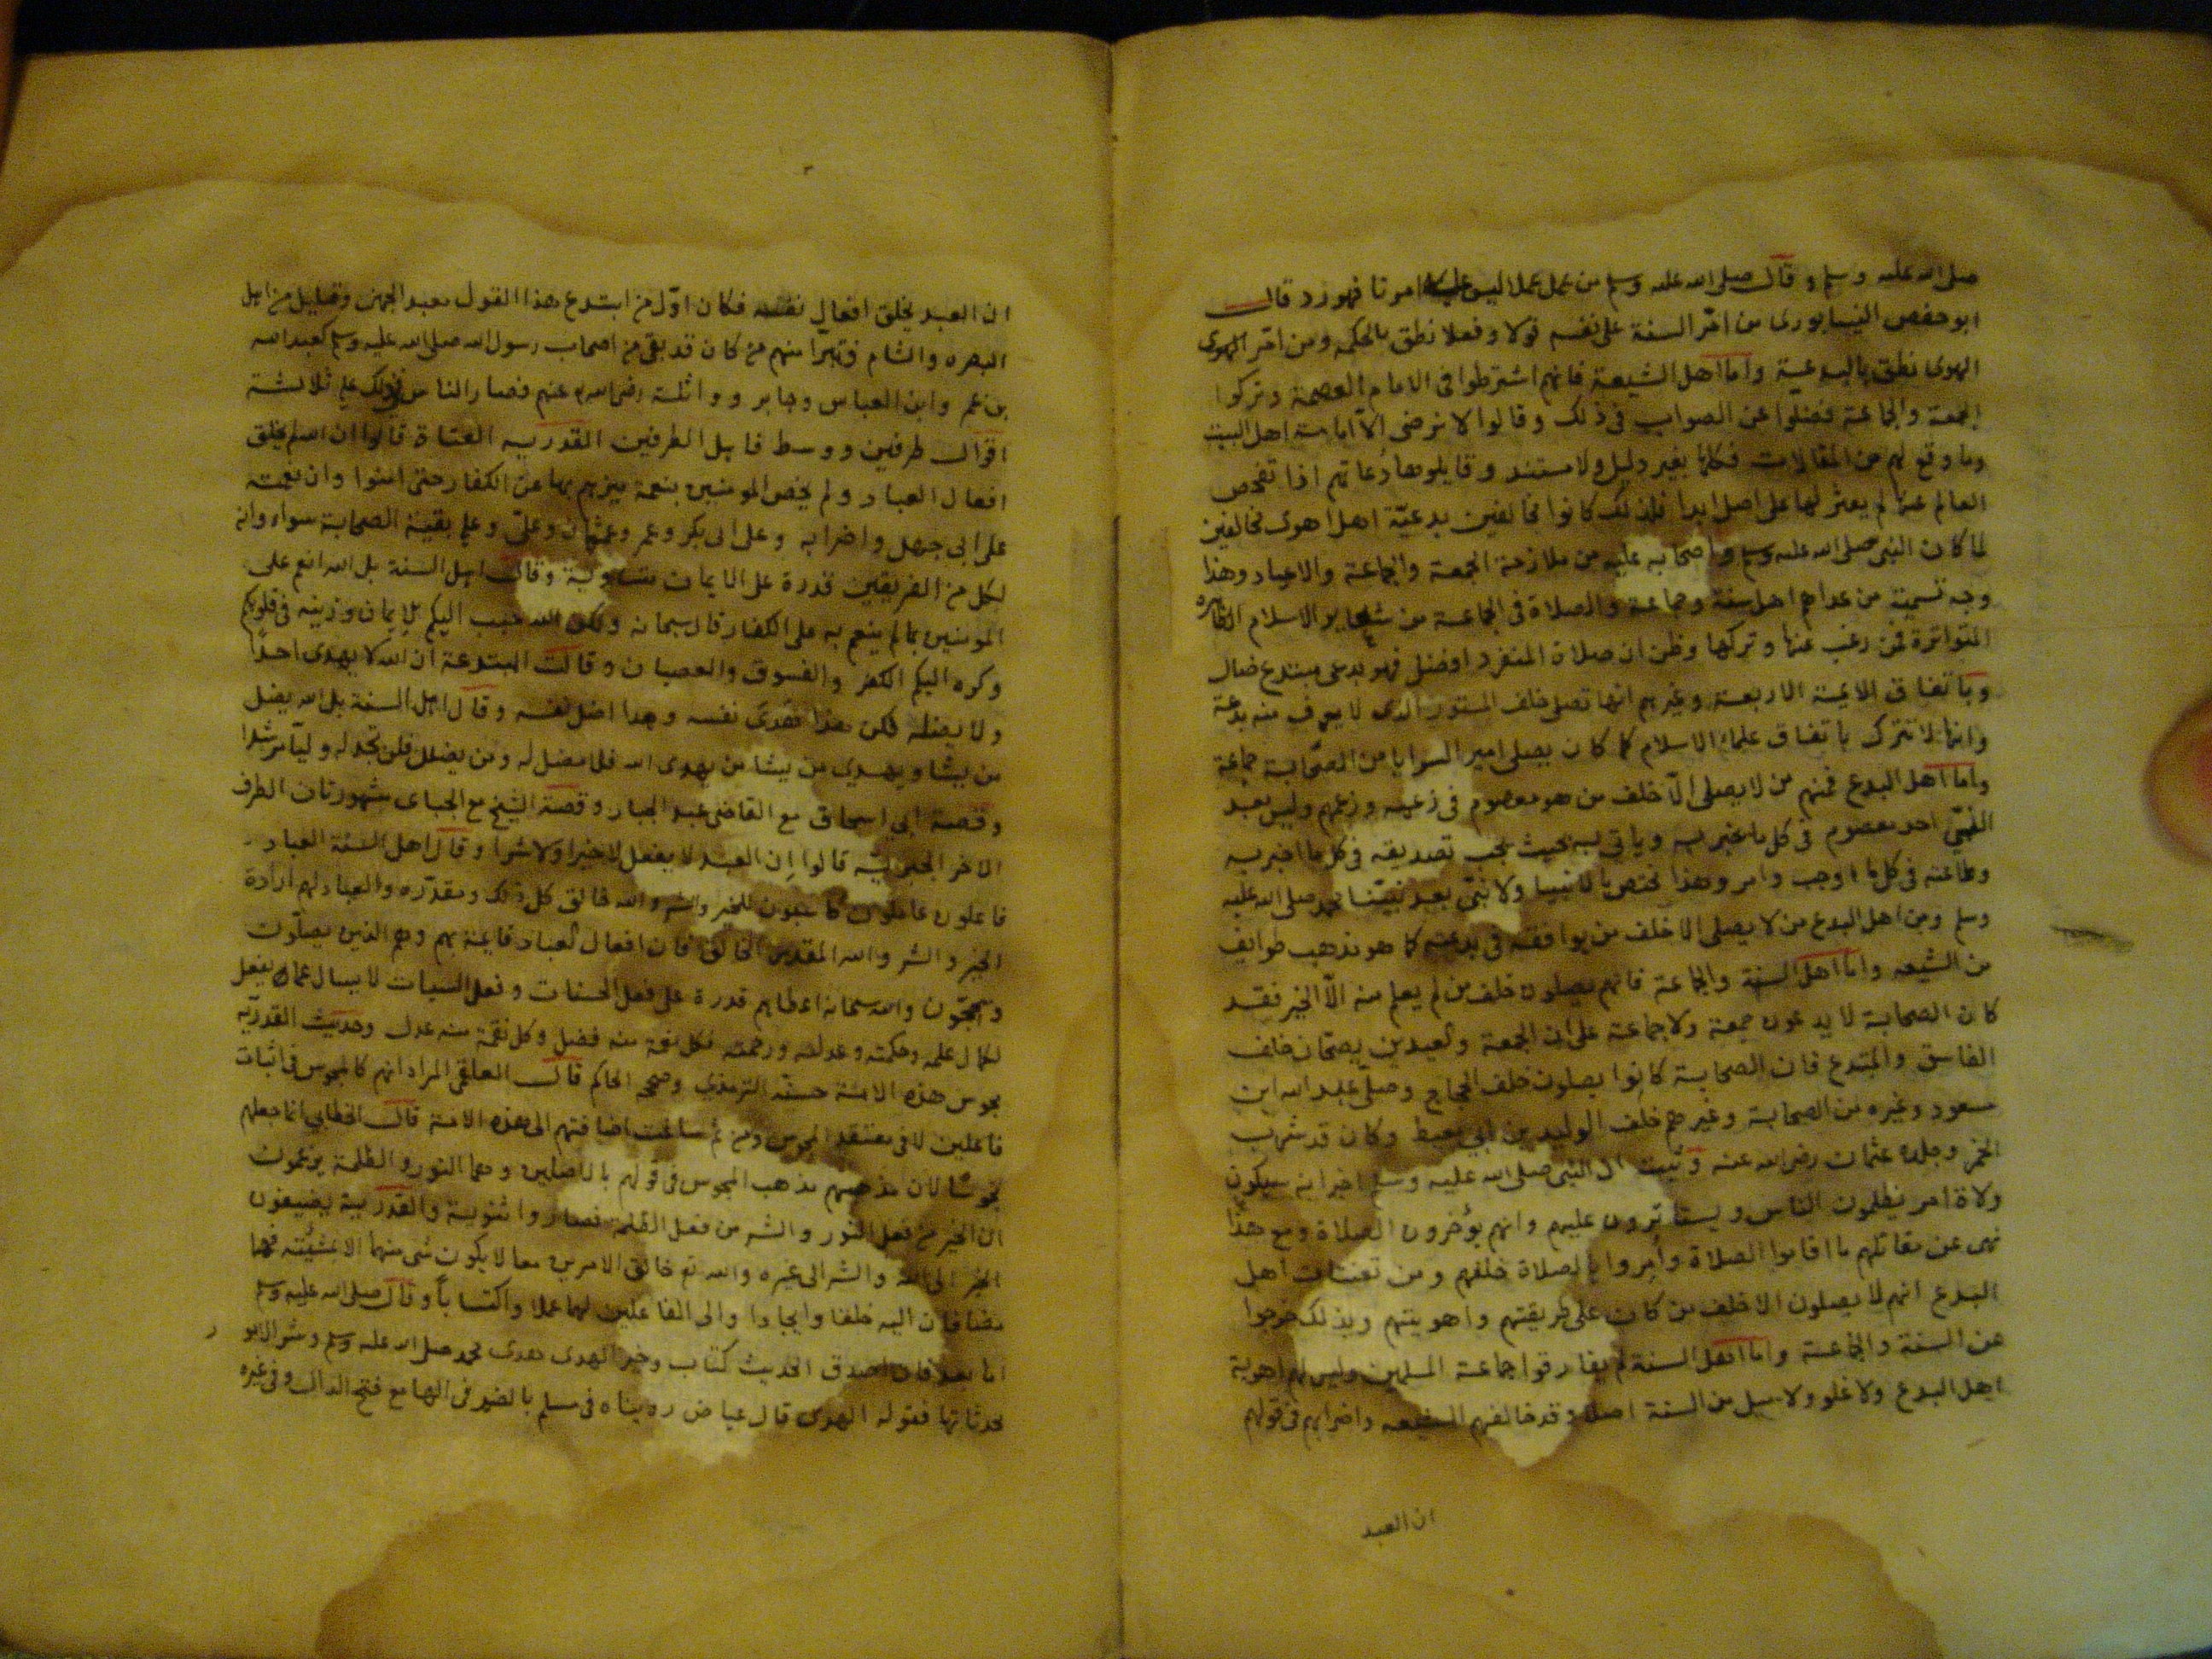 صلى الله عليه وسلم وقال صلى الله عليه وسلم من عمل عملا ليس عليه امرنا فهو رد قال
ابو حفص النيسابورى من امّر السنة على نفسه قولا وفعلا نطق بالحكمة ومن امّر الهوى
الهوى نطق بالبدعية واما اهل الشيعة فانهم اشترطوا فى الامام العصمة وتركوا
الجمعة والجماعة فضلوا عن الصواب فى ذلك وقالوا لا نرضى الّا امامة اهل البيت
وما وقع لهم من المقالات فكلها بغير دليل ولا مستند وقايلوها دُعاتهم اذا تفحص
العالم عنها لم يعثر لها على اصل ابدا فلذلك كانوا مخالفين بدعيّة اهل اهوى مخالفين
لما كان النبى صلى الله عليه وسلم واصحابه عليه من ملازمة الجمعة والجماعة والاعياد وهذا
وجه تسمية من عداهم اهل سنة وجماعة والصلاة فى الجماعة من شعاير الاسلام الظاهره
المتواترة فمن رغب عنها وتركها وظن ان صلاة المنفرد افضل فهو بدعى مبتدع ضال
وباتفاق الايمة الاربعة وغيرهم انها تصلى خلف المستور الذى لا يعرف منه بدعة
وانها لا تترك باتفاق علماء الاسلام كما كان يصلى امير السرايا من الصحابة جماعة
واما اهل البدع فمنهم من لا يصلى الّا خلف من هو معصوم فى زعمه وزعمهم وليس بعد
النبىّ احد معصوم فى كل ما يخبر به وياتى به بحيث يجب تصديقه فى كل ما اخبر به
وطاعته فى كل ما اوجب وامر وهذا مختص بالانبيا ولا نبىّ بعد نبيّنا محمد صلى الله عليه
وسلم ومن اهل البدع من لا يصلى الا خلف من يوافقه فى بدعته كما هو مذهب طوايف
من الشيعه واما اهل السنة والجماعة فانهم يصلون خلف من لم يعلم منه الّا الخير فقد
كان الصحابة لا يدعون جمعة ولا جماعة على ان الجمعة والعيدين يصحان خلف
الفاسق والمبتدع فان الصحابة كانوا يصلون خلف الحجاج وصلّى عبد الله ابن
مسعود وغيره من الصحابة وغيرهم خلف الوليد بن ابى معيط وكان قد شرب
الخمر وجلده عثمان رضى الله عنه وثبت ان النبى صلى الله عليه وسلم اخبر انه سيكون
ولاة امر يظلمون الناس ويستاثرون عليهم وانهم يؤخرون الصلاة ومع هذا
نهى عن مقاتلهم ما اقاموا الصلاة وأمروا بالصلاة خلفهم ومن تعنتات اهل
البدع انهم لا يصلون الا خلف من كان على طريقتهم واهويتهم وبذلك خرجوا
عن السنة والجماعة واما اهل السنة لم يفارقوا جماعة المسلمين وليس لهم اهوية
اهل البدع ولا غلو ولا ميل من السنة اصلا وقد خالفهم الشيعه واضرابهم فى قولهم
ان العبد
ان العبد يخلق افعال نفسه فكان اوّل من ابتدع هذا القول معبد الجهنى وقليل من اهل
البصره والشام فتبرّأ منهم من كان قد بقى من اصحاب رسول الله صلى الله عليه وسلم كعبد الله
بن عمر وابن العباس وجابر وواثلة رضى الله عنهم فصار الناس فى ذلك على ثلاثة
اقوال طرفين ووسط فاهل الطرفين القدريه العتاة قالوا ان الله لم يخلق
افعال العباد ولم يخص المومنين بنعمة ميزهم بها عن الكفار حتى امنوا وان نعمته
على ابى جهل واضرابه وعلى ابى بكر وعمر وعثمان وعلىّ وعلى بقية الصحابة سواء وانه
لكل من الفريقين قدرة على الايمان متساوية وقالت اهل السنة بل الله انعم على
المومنين بما لم ينعم به على الكفار قال سبحانه ولكن الله حبب اليكم الايمان وزينه فى قلوبكم
وكره اليكم الكفر والفسوق والعصيان وقالت المبتدعة ان الله لا يهدى احداً
ولا يضله لكن هذا هدى نفسه وهذا اضل نفسه وقال اهل السنة بل الله يضل
من يشا ويهدى من يشا من يهدى الله فلا مضل له ومن يضلل فلن تجد له وليّا مرشدا
وقصة ابى اسحاق مع القاضى عبد الجبار وقصة الشيخ مع الجباى مشهورتان الطرف
الاخر الجبريّه قالوا اِن العبد لا يفعل لا خيرا ولا شرا وقال اهل السنّة العباد
فاعلون عاملون كاسبون للخير والشر والله خالق كل ذلك ومقدّره والعباد لهم ارادة
الخير والشر والله المقدس الخالق فان افعال العباد قايمة بهم وهم الذين يصلّون
ويحجّون والله سبحانه اعطاهم قدرة على فعل الحسنات وفعل السيات لا يسال عما يفعل
لكمال علمه وحكمته وعدله ورحمته فكل نعمة منه فضل وكل نقمة منه عدل وحديث القدريّه
مجوس هذه الامّة حسنّه الترمذى وصححه الحاكم قال العلقمى المراد انهم كالمجوس فى اثبات
فاعلين لا فى معتقد المجوس ومن ثم ساغت اضافتهم الى هذه الامة قال الخطابى انما جعلهم
مجوسًا لان مذهبهم مذهب المجوس فى قولهم بالاصلين وهما النور والظلمة يزعمون
ان الخير من فعل النور والشر من فعل الظلمه فصاروا ثنوية والقدرية يضيفون
الخير الى الله والشر الى غيره والله تع خالق الامرين معا لا يكون شى منهما الا بمشيئته فهما
مضافان اليه خلقا وايجادا والى الفاعلين لهما عملا واكتساباً وقال صلى الله عليه وسلم
اما بعد فان اصدق الحديث كتاب وخير الهدى هدى محمد صلى الله عليه وسلم وشر الامور
محدثاتها فقوله الهدى قال عياض رويناه فى مسلم بالضم فى الها مع فتح الدال وفى غيره